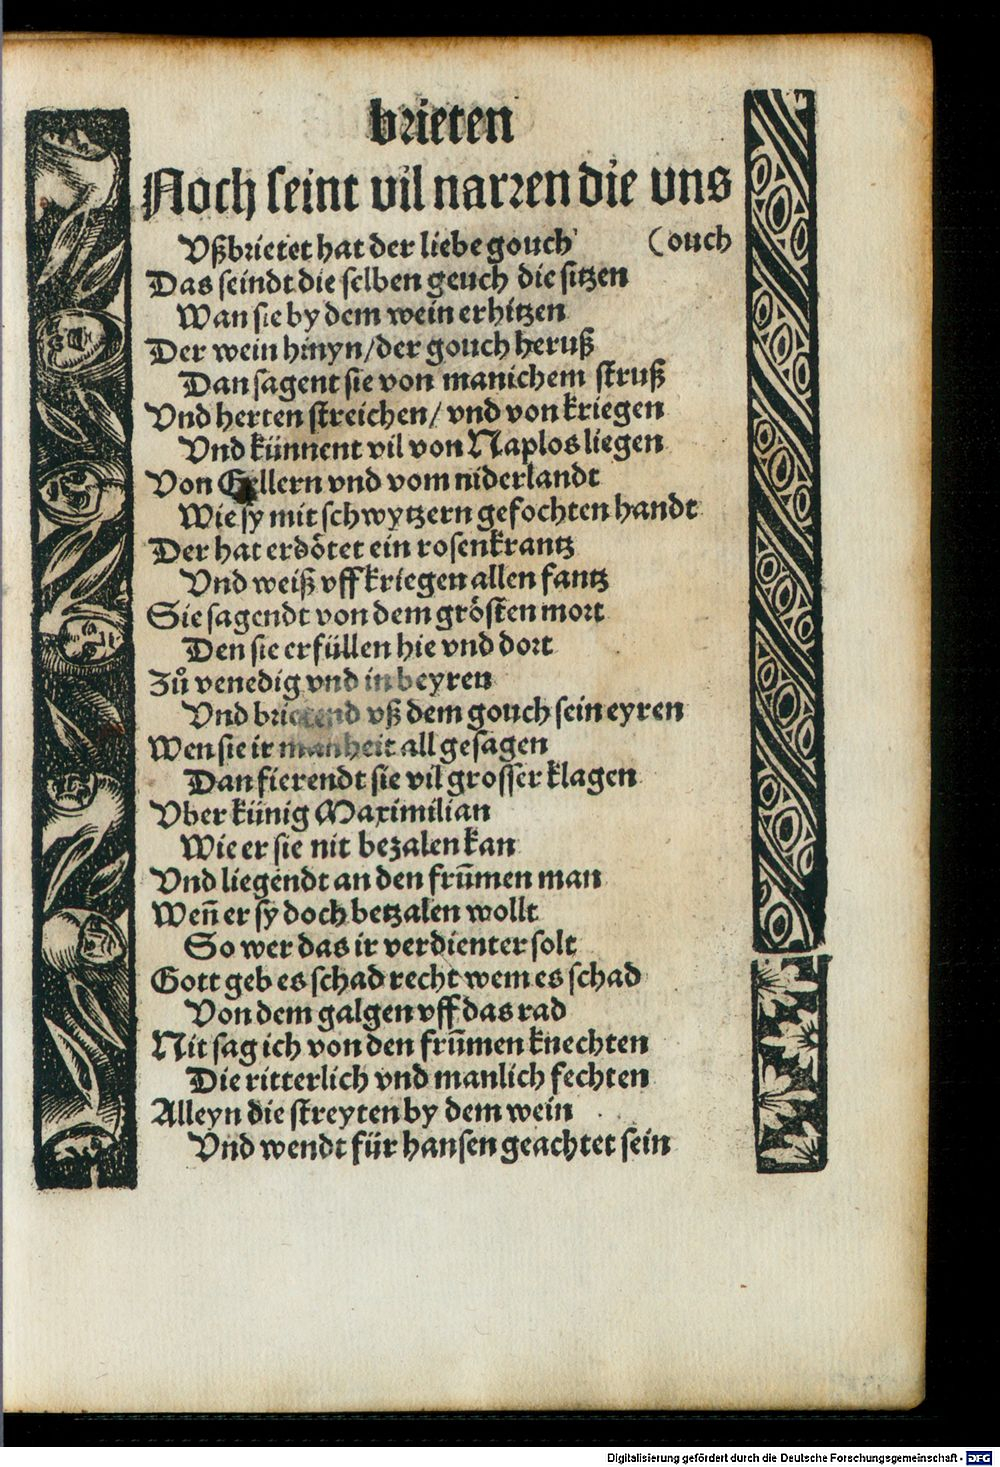 brieten
Noch seint vil narren die vns
Vßbrietet hat der liebe gouch (ouch
Das seindt die selben geuch die sitzen
Wan sie by dem wein erhitzen
Der wein hinyn/der gouch heruß
Dan sagent sie von manichem struß
Vnd herten streichen/ vnd von kriegen
Vnd künnent vil von Naplos liegen
Von Gellern vnd vom niderlandt
Wie sy mit schwytzern gefochten handt
Der hat erdötet ein rosenkrantz
Vnd weiß vff kriegen allen fantz
Sie sagendt von dem grösten mort
Den sie erfüllen hie vnd dort
Zů venedig vnd in beyren
Vnd brietend vß dem gouch sein eyren
Wen sie ir manheit all gesagen
Dan fierendt sie vil grosser klagen
Vber künig Maximilian
Wie er sie nit bezalen kan
Vnd liegendt an den frūmen man
Weñ er sy doch betzalen wollt
So wer das ir verdienter solt
Gott geb es schad recht wem es schad
Von dem galgen vff das rad
Nit sag ich von den frūmen knechten
Die ritterlich vnd manlich fechten
Alleyn die streyten by dem wein
Vnd wendt für hansen geachtet sein
Digitalisierung gefördert durch die Deutsche Forschungsgemeinschaft - DFG